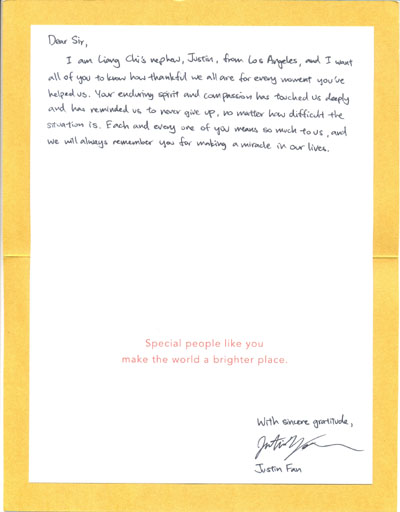 Dear Sir,
I am Liang Chi's nephew, Justin, from Los Angeles, and I want
all of you to know how thankful we all are for every moment you've
helped us. Your enduring spirit and compassion has touched us deeply
and has reminded us to never give up, no matter how difficult the
situation is. Each and every one of you means so much to us, and
we will always remember you for making a miracle in our lives.
Special people like you
make the world a brighter place.
With sincere gratitude,
Justin Fan